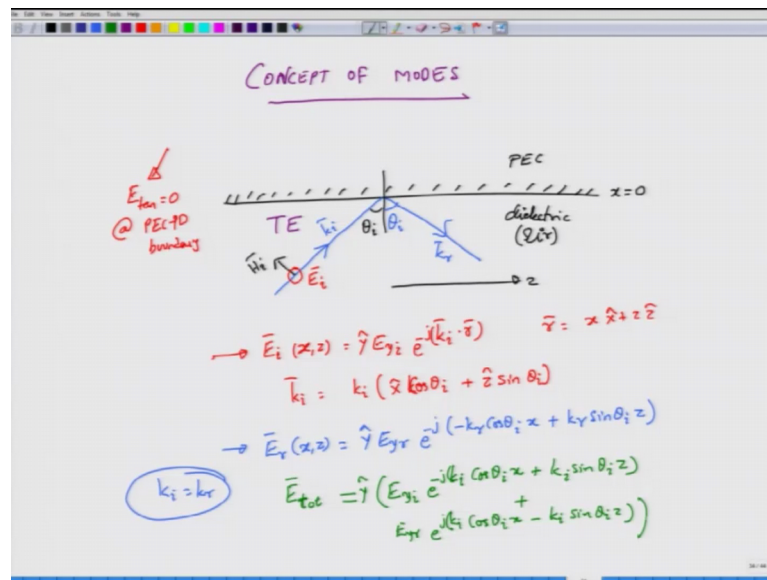 File Edit View Insert Actions Tools Help
CONCEPT OF MODES
PEC
x=0
E_tan=0
@ PEC-PD
boundary
TE
k̄_i
θ_i
θ_i
k̄_r
dielectric
(air)
H̄_i
Ē_i
z
→ Ē_i (x,z) = ŷ E_yi e^-j(k̄_i · r̄)
r̄ = x x̂ + z ẑ
k̄_i = k_i (x̂ cosθ_i + ẑ sin θ_i)
→ Ē_r (x,z) = ŷ E_yr e^-j (-k_r cosθ_i x + k_r sinθ_i z)
k_i = k_r
Ē_tot = ŷ (E_yi e^-j(k_i cosθ_i x + k_i sinθ_i z)
+
E_yr e^j(k_i cosθ_i x - k_i sinθ_i z))